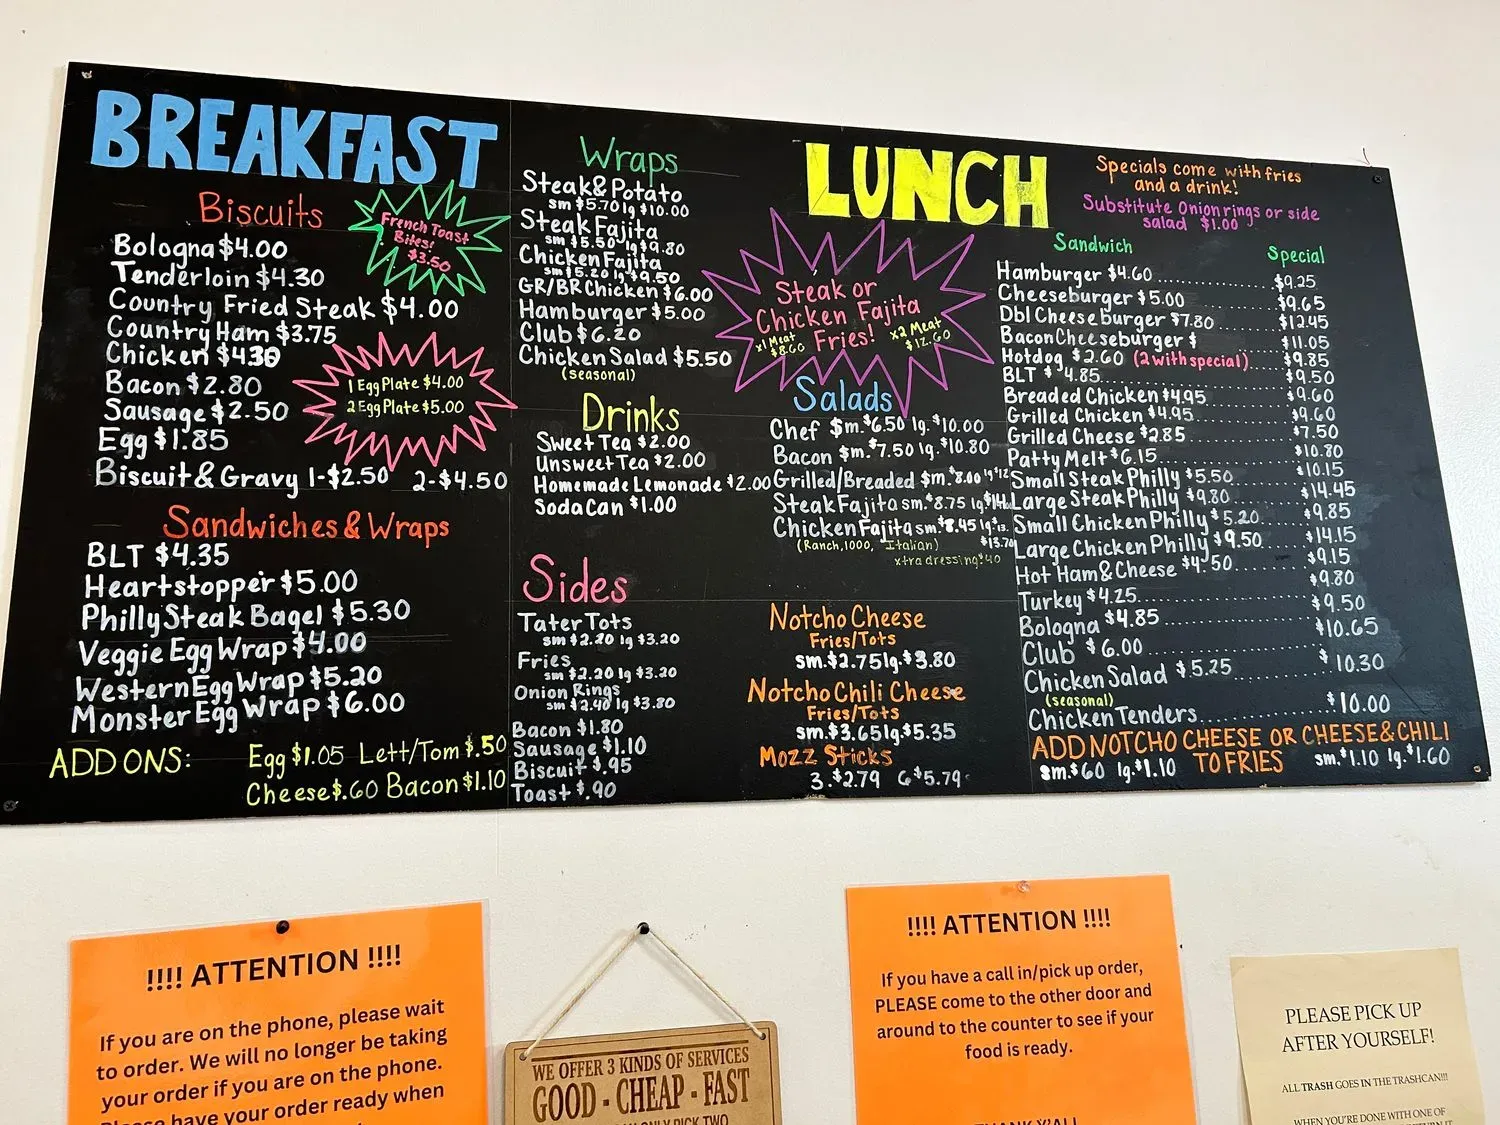 BREAKFAST
Biscuits
French Toast
Bites!
$3.50
Bologna $4.00
Tenderloin $4.30
Country Fried Steak $4.00
Country Ham $3.75
Chicken $4.30
Bacon $2.80
Sausage $2.50
Egg $1.85
Biscuit & Gravy 1-$2.50 2-$4.50
1 Egg Plate $4.00
2 Egg Plate $5.00
Sandwiches & Wraps
BLT $4.35
Heartstopper $5.00
Philly Steak Bagel $5.30
Veggie Egg Wrap $4.00
Western Egg Wrap $5.20
Monster Egg Wrap $6.00
ADD ONS: Egg $1.05 Lett/Tom $.50
Cheese $.60 Bacon $1.10
Wraps
Steak & Potato
sm $5.70 lg $10.00
Steak Fajita
sm $5.50 lg $9.80
Chicken Fajita
sm $5.20 lg $9.50
GR/BR Chicken $6.00
Hamburger $5.00
Club $6.20
Chicken Salad $5.50
(seasonal)
Drinks
Sweet Tea $2.00
Unsweet Tea $2.00
Homemade Lemonade $2.00
Soda Can $1.00
Sides
Tater Tots
sm $2.20 lg $3.20
Fries
sm $2.20 lg $3.20
Onion Rings
sm $2.40 lg $3.80
Bacon $1.80
Sausage $1.10
Biscuit $.95
Toast $.90
LUNCH
Steak or
Chicken Fajita
Fries!
x1 Meat
$8.60
x2 Meat
$12.60
Salads
Chef $m. $6.50 lg. $10.00
Bacon $m. $7.50 lg. $10.80
Grilled/Breaded $m. $8.00 lg $12
Steak Fajita sm. $8.75 lg. $14
Chicken Fajita sm $8.45 lg. $13.
$13.70
(Ranch, 1000, Italian)
xtra dressing $.40
Notcho Cheese
Fries/Tots
sm. $2.75 lg. $3.80
Notcho Chili Cheese
Fries/Tots
sm. $3.65 lg. $5.35
Mozz Sticks
3. $2.79 6 $5.79
Specials come with fries
and a drink!
Substitute Onion rings or side
salad $1.00
Sandwich Special
Hamburger $4.60 $9.25
Cheeseburger $5.00 $9.65
Dbl Cheeseburger $7.80 $12.45
Bacon Cheeseburger $ $11.05
Hotdog $2.60 (2 with special) $9.85
BLT $4.85 $9.50
Breaded Chicken $4.95 $9.60
Grilled Chicken $4.95 $9.60
Grilled Cheese $2.85 $7.50
Patty Melt $6.15 $10.80
Small Steak Philly $5.50 $10.15
Large Steak Philly $9.80 $14.45
Small Chicken Philly $5.20 $9.85
Large Chicken Philly $9.50 $14.15
Hot Ham & Cheese $4.50 $9.15
Turkey $4.25 $9.80
Bologna $4.85 $9.50
Club $6.00 $10.65
Chicken Salad $5.25 $10.30
(seasonal)
Chicken Tenders $10.00
ADD NOTCHO CHEESE OR CHEESE & CHILI
TO FRIES
sm. $60 lg. $1.10 sm. $1.10 lg. $1.60
!!!! ATTENTION !!!!
If you are on the phone, please wait
to order. We will no longer be taking
your order if you are on the phone.
Please have your order ready when
WE OFFER 3 KINDS OF SERVICES
GOOD - CHEAP - FAST
ONLY PICK TWO
!!!! ATTENTION !!!!
If you have a call in/pick up order,
PLEASE come to the other door and
around to the counter to see if your
food is ready.
THANK Y'ALL
PLEASE PICK UP
AFTER YOURSELF!
ALL TRASH GOES IN THE TRASHCAN!!!
WHEN YOU'RE DONE WITH ONE OF